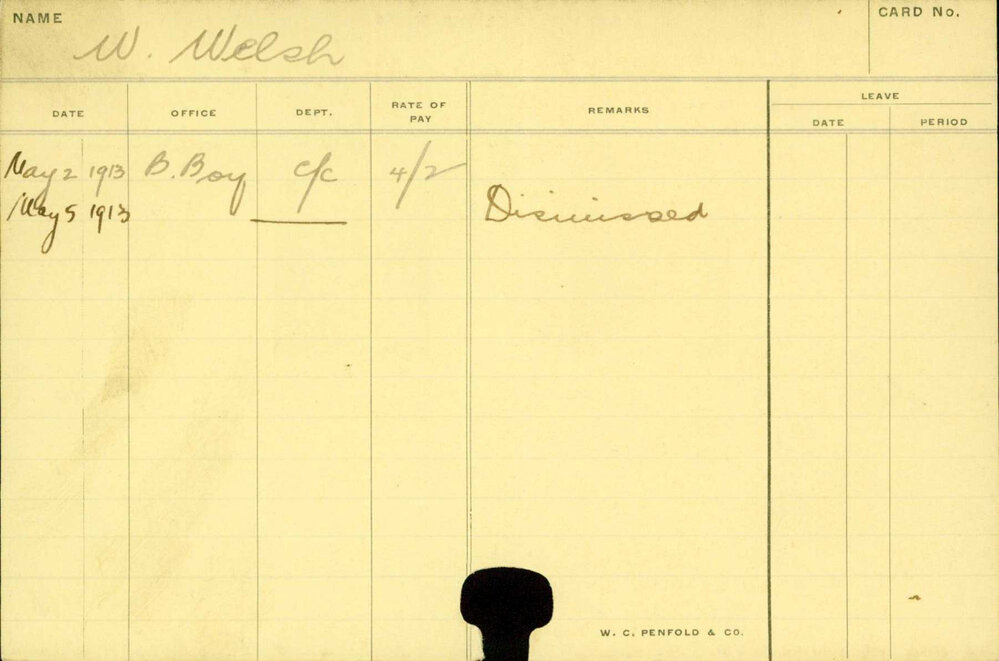 NAME
W. Welsh
CARD No.
DATE OFFICE DEPT. RATE OF PAY REMARKS LEAVE
DATE PERIOD
May 2 1913 B. Boy c/c 4/2
May 5 1913 Dismissed
W. C. PENFOLD & CO.